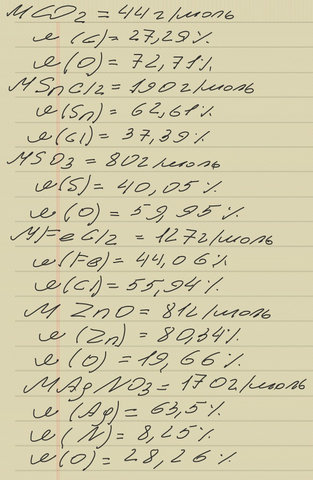 MCO2 = 44 г/моль
w(C) = 27,29%
w(O) = 72,71%
MSnCl2 = 190 г/моль
w(Sn) = 62,61%
w(Cl) = 37,39%
MSO3 = 80 г/моль
w(S) = 40,05%
w(O) = 59,95%
MFeCl2 = 127 г/моль
w(Fe) = 44,06%
w(Cl) = 55,94%
M ZnO = 81 г/моль
w(Zn) = 80,34%
w(O) = 19,66%
MAgNO3 = 170 г/моль
w(Ag) = 63,5%
w(N) = 8,25%
w(O) = 28,26%